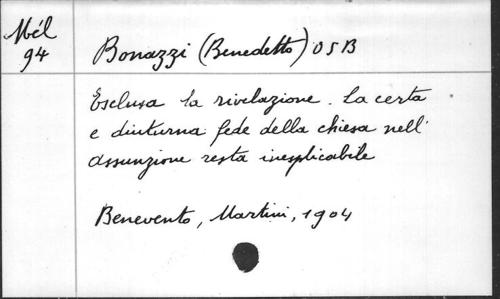 Mél
94
Bonazzi (Benedetto) OSB
Esclusa la rivelazione. La certa
e diuturna fede della chiesa nell'
assunzione resta inesplicabile
Benevento, Martini, 1904